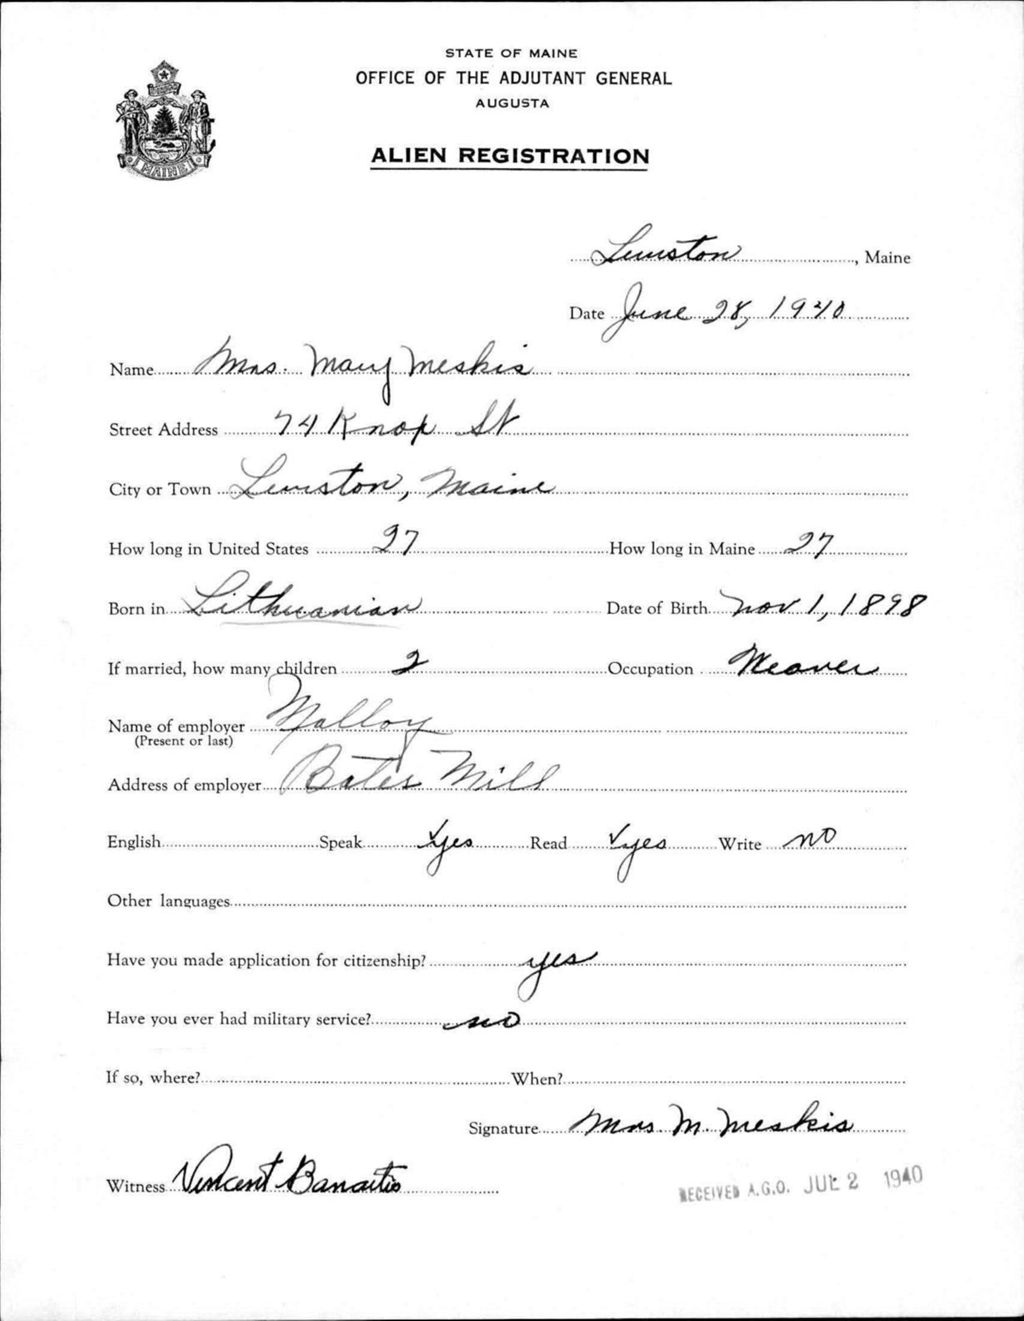 STATE OF MAINE
OFFICE OF THE ADJUTANT GENERAL
AUGUSTA
MAINE
ALIEN REGISTRATION
Lewiston, Maine
Date June 28, 1940
Name Mrs. Mary Meskis
Street Address 74 Knox St
City or Town Lewiston, Maine
How long in United States 27 How long in Maine 27
Born in Lithuanian Date of Birth Nov 1, 1898
If married, how many children 2 Occupation Weaver
Name of employer Malloy
(Present or last)
Address of employer Bates Mill
English Speak yes Read yes Write no
Other languages
Have you made application for citizenship? yes
Have you ever had military service? no
If so, where? When?
Signature Mrs. M. Meskis
Witness Vincent Banaitis
RECEIVED A.G.O. JUL 2 1940